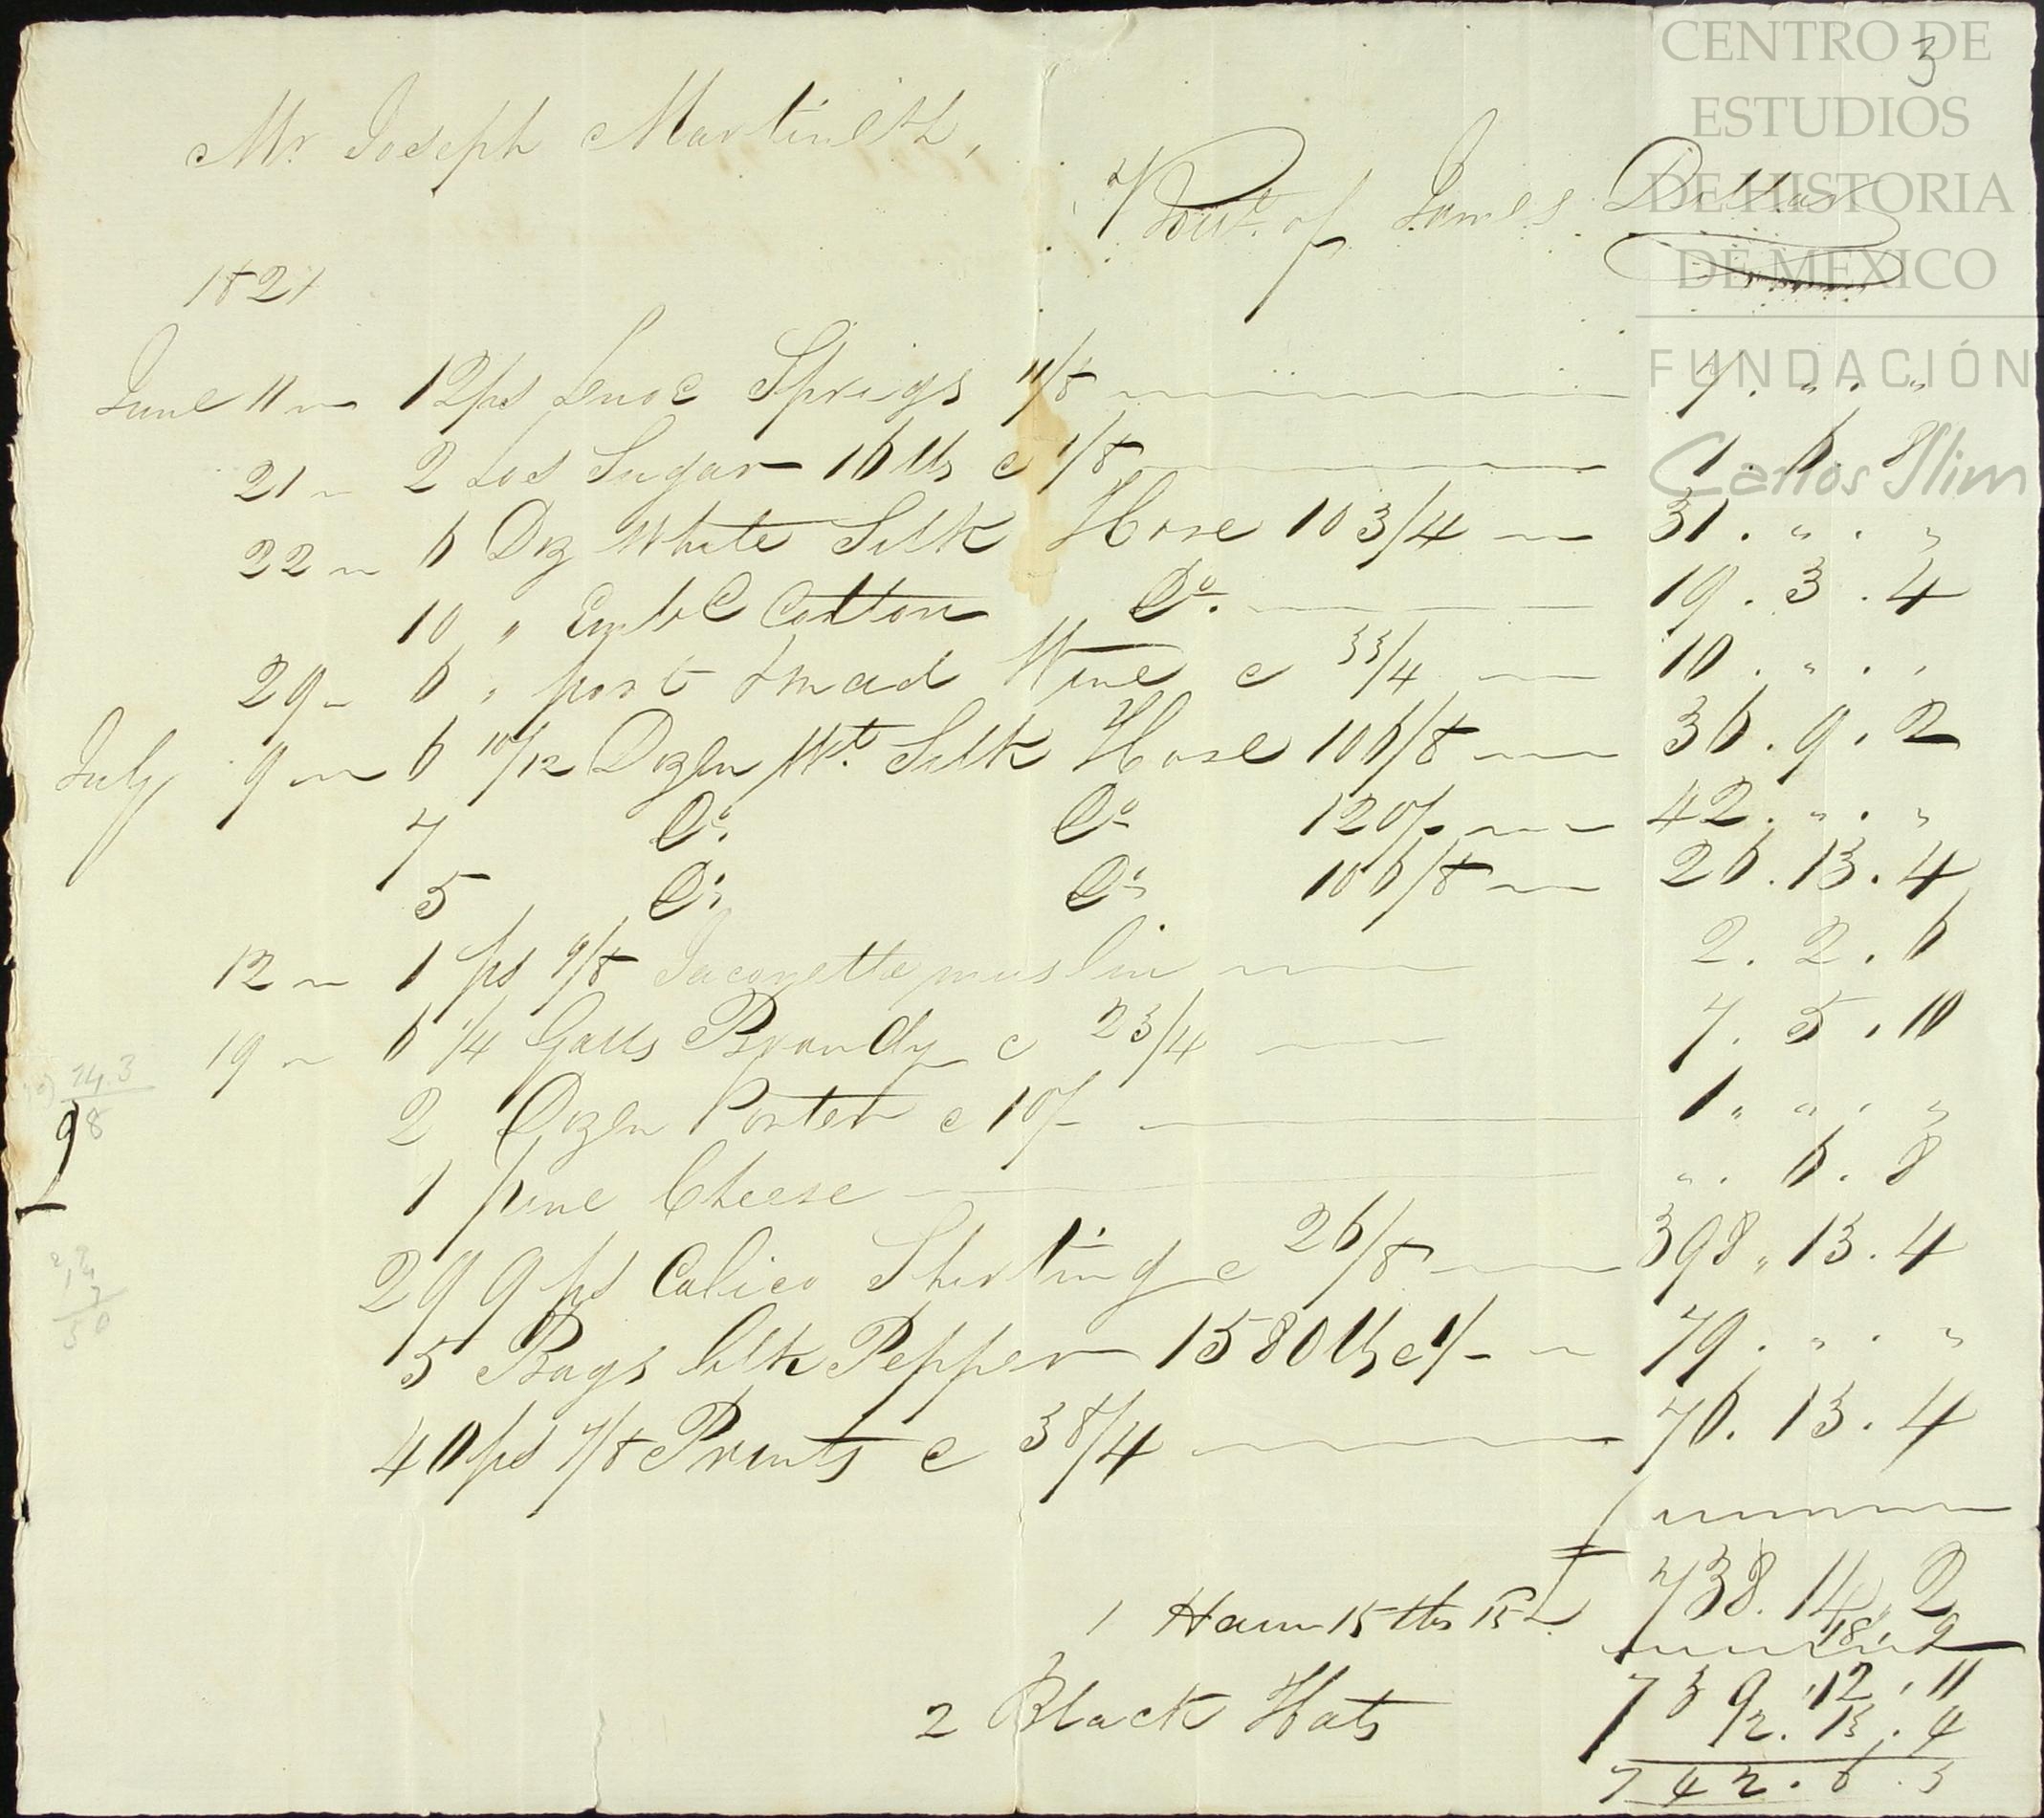 3
Mr Joseph Martineth,
Bout. of James Dillon
1821
June 11 12ps Leno Springs 11/8 7 . " . "
21 2 Los Sugar 16 lbs @ 1/8 1 . 6 . 8
22 6 Doz White Silk Hose 103/4 31 . " . "
10 " Emb'd Cotton Do. 19 . 3 . 4
29 6 " port & mad Wine @ 33/4 10 . " . "
July 9 6 10/12 Dozen Wt. Silk Hose 106/8 36 . 9 . 2
7 Do. Do 120/. 42 . " . "
5 Do. Do 106/8 26 . 13 . 4
12 1 ps 9/8 Jaconette muslin 2 . 2 . 6
19 6 1/4 Galls Brandy @ 23/4 7 . 5 . 10
2 Dozen Porter @ 10/- 1 " " . "
1 pine Cheese " . 6 . 8
299 ps Calico Shirting @ 26/8 398 " 13 . 4
5 Bags blk Pepper 1580 lb @ 1/- 79 . " . "
40 ps 7/8 Prints @ 38/4 76 . 13 . 4
£ 738 . 14 . 2
1 Ham 15 lbs 15 18 . 9
739 . 12 . 11
2 Black Hats 2 . 13 . 4
742 . 6 . 3
14.3
8
CENTRO DE
ESTUDIOS
DE HISTORIA
DE MEXICO
FUNDACIÓN
Carlos Slim